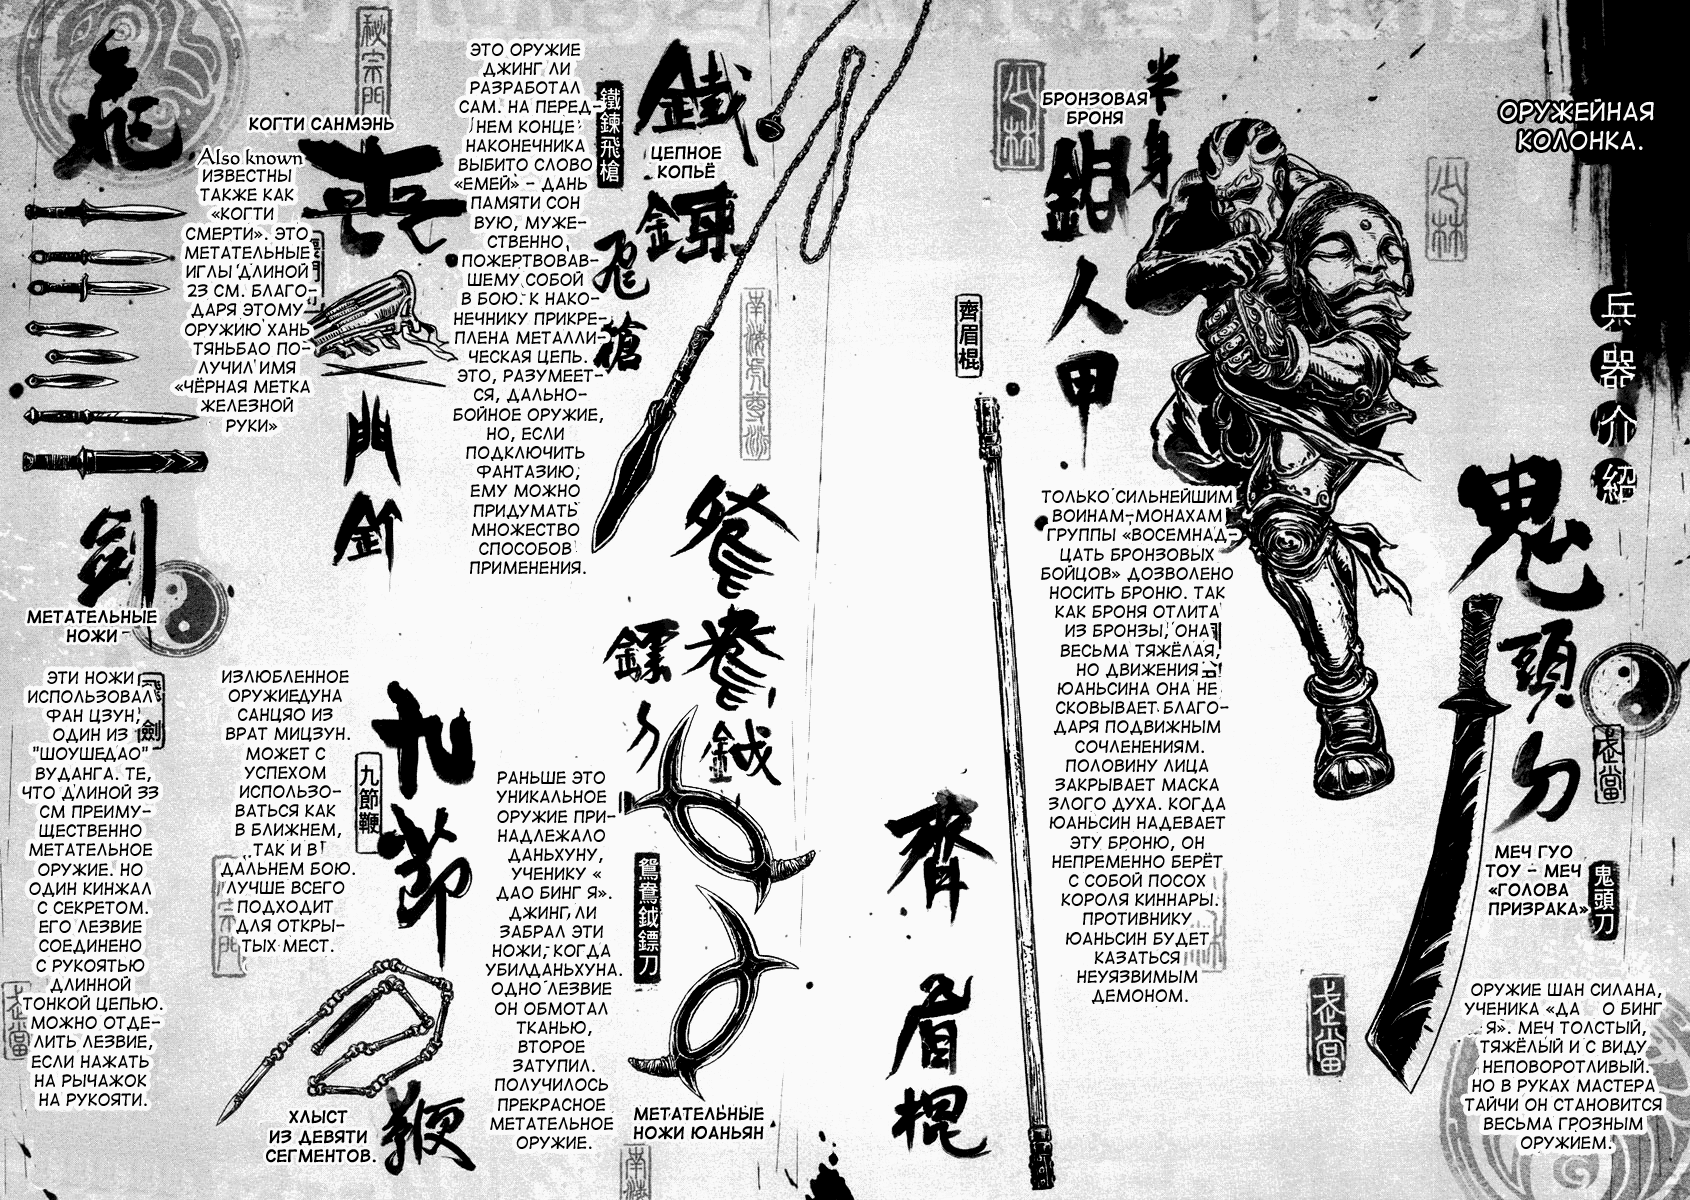 ОРУЖЕЙНАЯ
КОЛОНКА.
兵器介紹
鬼頭刀
МЕЧ ГУО
ТОУ – МЕЧ
«ГОЛОВА
ПРИЗРАКА»
鬼頭刀
武當
ОРУЖИЕ ШАН СИЛАНА,
УЧЕНИКА «ДА О БИНГ
Я». МЕЧ ТОЛСТЫЙ,
ТЯЖЁЛЫЙ И С ВИДУ
НЕПОВОРОТЛИВЫЙ.
НО В РУКАХ МАСТЕРА
ТАЙЧИ ОН СТАНОВИТСЯ
ВЕСЬМА ГРОЗНЫМ
ОРУЖИЕМ.
武當
少林
少林
半身
БРОНЗОВАЯ
БРОНЯ
銅人甲
ТОЛЬКО СИЛЬНЕЙШИМ
ВОИНАМ-МОНАХАМ
ГРУППЫ «ВОСЕМНАД-
ЦАТЬ БРОНЗОВЫХ
БОЙЦОВ» ДОЗВОЛЕНО
НОСИТЬ БРОНЮ. ТАК
КАК БРОНЯ ОТЛИТА
ИЗ БРОНЗЫ, ОНА
ВЕСЬМА ТЯЖЁЛАЯ,
НО ДВИЖЕНИЯ
ЮАНЬСИНА ОНА НЕ
СКОВЫВАЕТ БЛАГО-
ДАРЯ ПОДВИЖНЫМ
СОЧЛЕНЕНИЯМ.
ПОЛОВИНУ ЛИЦА
ЗАКРЫВАЕТ МАСКА
ЗЛОГО ДУХА. КОГДА
ЮАНЬСИН НАДЕВАЕТ
ЭТУ БРОНЮ, ОН
НЕПРЕМЕННО БЕРЁТ
С СОБОЙ ПОСОХ
КОРОЛЯ КИННАРЫ.
ПРОТИВНИКУ
ЮАНЬСИН БУДЕТ
КАЗАТЬСЯ
НЕУЯЗВИМЫМ
ДЕМОНОМ.
齊眉棍
齊眉棍
鐵鍊飛槍
ЦЕПНОЕ
КОПЬЁ
鐵鍊飛槍
ЭТО ОРУЖИЕ
ДЖИНГ ЛИ
РАЗРАБОТАЛ
САМ. НА ПЕРЕД-
НЕМ КОНЦЕ
НАКОНЕЧНИКА
ВЫБИТО СЛОВО
«ЕМЕЙ» – ДАНЬ
ПАМЯТИ СОН
ВУЮ, МУЖЕ-
СТВЕННО
ПОЖЕРТВОВАВ-
ШЕМУ СОБОЙ
В БОЮ. К НАКО-
НЕЧНИКУ ПРИКРЕ-
ПЛЕНА МЕТАЛЛИ-
ЧЕСКАЯ ЦЕПЬ.
ЭТО, РАЗУМЕЕТ-
СЯ, ДАЛЬНО-
БОЙНОЕ ОРУЖИЕ,
НО, ЕСЛИ
ПОДКЛЮЧИТЬ
ФАНТАЗИЮ,
ЕМУ МОЖНО
ПРИДУМАТЬ
МНОЖЕСТВО
СПОСОБОВ
ПРИМЕНЕНИЯ.
鴛鴦鉞
鏢刀
鴛鴦鉞鏢刀
РАНЬШЕ ЭТО
УНИКАЛЬНОЕ
ОРУЖИЕ ПРИ-
НАДЛЕЖАЛО
ДАНЬХУНУ,
УЧЕНИКУ «
ДАО БИНГ Я».
ДЖИНГ ЛИ
ЗАБРАЛ ЭТИ
НОЖИ, КОГДА
УБИЛДАНЬХУНА.
ОДНО ЛЕЗВИЕ
ОН ОБМОТАЛ
ТКАНЬЮ,
ВТОРОЕ
ЗАТУПИЛ.
ПОЛУЧИЛОСЬ
ПРЕКРАСНОЕ
МЕТАТЕЛЬНОЕ
ОРУЖИЕ.
МЕТАТЕЛЬНЫЕ
НОЖИ ЮАНЬЯН
秘宗門
КОГТИ САНМЭНЬ
喪門釘
Also known
ИЗВЕСТНЫ
ТАКЖЕ КАК
«КОГТИ
СМЕРТИ». ЭТО
МЕТАТЕЛЬНЫЕ
ИГЛЫ ДЛИНОЙ
23 СМ. БЛАГО-
ДАРЯ ЭТОМУ
ОРУЖИЮ ХАНЬ
ТЯНЬБАО ПО-
ЛУЧИЛ ИМЯ
«ЧЁРНАЯ МЕТКА
ЖЕЛЕЗНОЙ
РУКИ»
九節鞭
九節鞭
ИЗЛЮБЛЕННОЕ
ОРУЖИЕДУНА
САНЦЯО ИЗ
ВРАТ МИЦЗУН.
МОЖЕТ С
УСПЕХОМ
ИСПОЛЬЗО-
ВАТЬСЯ КАК
В БЛИЖНЕМ,
ТАК И В
ДАЛЬНЕМ БОЮ.
ЛУЧШЕ ВСЕГО
ПОДХОДИТ
ДЛЯ ОТКРЫ-
ТЫХ МЕСТ.
ХЛЫСТ
ИЗ ДЕВЯТИ
СЕГМЕНТОВ.
飛劍
МЕТАТЕЛЬНЫЕ
НОЖИ
ЭТИ НОЖИ
ИСПОЛЬЗОВАЛ
ФАН ЦЗУН,
ОДИН ИЗ
"ШОУШЕДАО"
ВУДАНГА. ТЕ,
ЧТО ДЛИНОЙ 33
СМ ПРЕИМУ-
ЩЕСТВЕННО
МЕТАТЕЛЬНОЕ
ОРУЖИЕ. НО
ОДИН КИНЖАЛ
С СЕКРЕТОМ.
ЕГО ЛЕЗВИЕ
СОЕДИНЕНО
С РУКОЯТЬЮ
ДЛИННОЙ
ТОНКОЙ ЦЕПЬЮ.
МОЖНО ОТДЕ-
ЛИТЬ ЛЕЗВИЕ,
ЕСЛИ НАЖАТЬ
НА РЫЧАЖОК
НА РУКОЯТИ.
武當